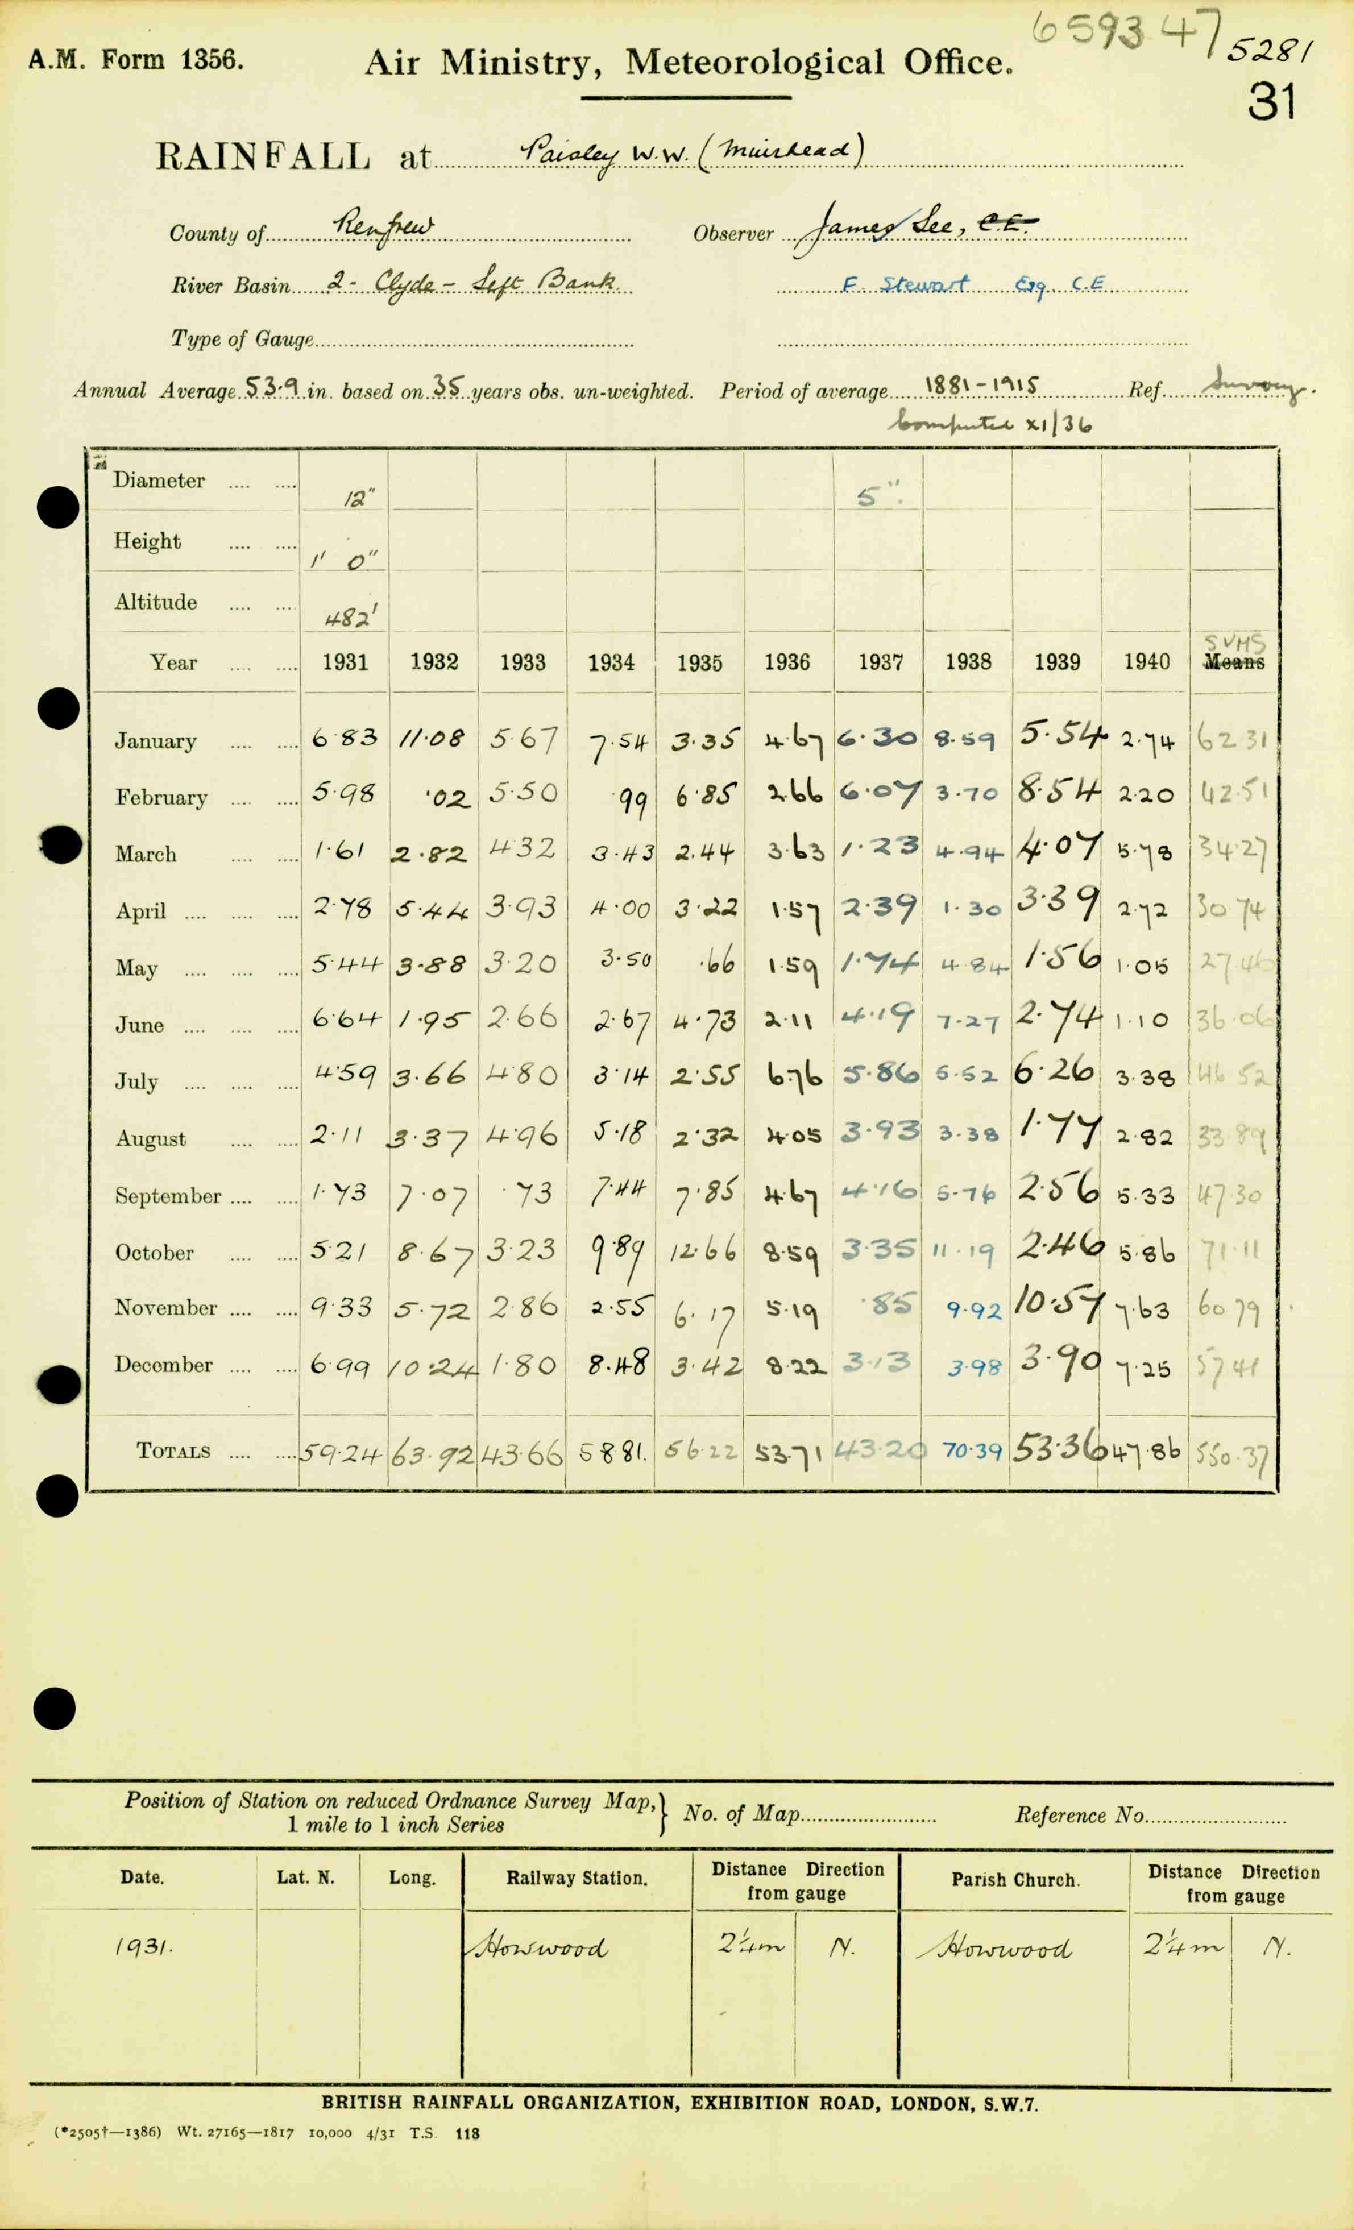 659347
5281
A.M. Form 1356. Air Ministry, Meteorological Office.
31
RAINFALL at Paisley W.W. (Muirhead)
County of Renfrew Observer James Lee, C.E.
River Basin 2 - Clyde - Left Bank. F. Stewart Esq. C.E.
Type of Gauge
Annual Average 53.9 in. based on 35 years obs. un-weighted. Period of average 1881-1915 Ref. Survey.
Computed XI/36
Diameter 12" 5".
Height 1' 0"
Altitude 482'
SUMS
Year 1931 1932 1933 1934 1935 1936 1937 1938 1939 1940 Means
January 6.83 11.08 5.67 7.54 3.35 4.67 6.30 8.59 5.54 2.74 62.31
February 5.98 .02 5.50 .99 6.85 2.66 6.07 3.70 8.54 2.20 42.51
March 1.61 2.82 4.32 3.43 2.44 3.63 1.23 4.94 4.07 5.78 34.27
April 2.78 5.44 3.93 4.00 3.22 1.57 2.39 1.30 3.39 2.72 30.74
May 5.44 3.88 3.20 3.50 .66 1.59 1.74 4.84 1.56 1.05 27.46
June 6.64 1.95 2.66 2.67 4.73 2.11 4.19 7.27 2.74 1.10 36.06
July 4.59 3.66 4.80 3.14 2.55 6.76 5.86 5.52 6.26 3.38 46.52
August 2.11 3.37 4.96 5.18 2.32 4.05 3.93 3.38 1.77 2.82 33.89
September 1.73 7.07 .73 7.44 7.85 4.67 4.16 5.76 2.56 5.33 47.30
October 5.21 8.67 3.23 9.89 12.66 8.59 3.35 11.19 2.46 5.86 71.11
November 9.33 5.72 2.86 2.55 6.17 5.19 .85 9.92 10.57 7.63 60.79
December 6.99 10.24 1.80 8.48 3.42 8.22 3.13 3.98 3.90 7.25 57.41
TOTALS 59.24 63.92 43.66 58.81. 56.22 53.71 43.20 70.39 53.36 47.86 550.37
Position of Station on reduced Ordnance Survey Map,} No. of Map Reference No.
1 mile to 1 inch Series
Date. Lat. N. Long. Railway Station. Distance Direction from gauge Parish Church. Distance Direction from gauge
1931. Howwood 2¼m N. Howwood 2¼m N.
BRITISH RAINFALL ORGANIZATION, EXHIBITION ROAD, LONDON, S.W.7.
(*2505†—1386) Wt. 27165—1817 10,000 4/31 T.S. 118